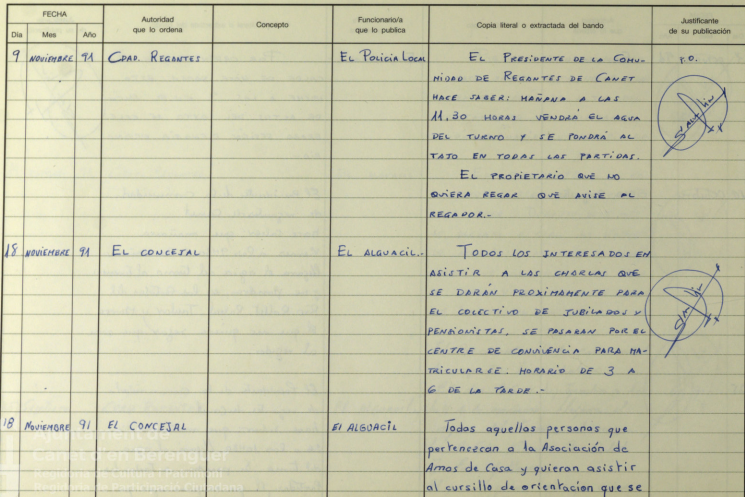 FECHA
Día Mes Año
Autoridad
que lo ordena
Concepto
Funcionario/a
que lo publica
Copia literal o extractada del bando
Justificante
de su publicación
9 NOVIEMBRE 91 CDAD. REGANTES EL POLICIA LOCAL EL PRESIDENTE DE LA COMU- P.O.
NIDAD DE REGANTES DE CANET
HACE SABER: MAÑANA A LAS
11,30 HORAS VENDRÁ EL AGUA
DEL TURNO Y SE PONDRÁ AL
TAJO EN TODAS LAS PARTIDAS.
EL PROPIETARIO QUE NO
QUIERA REGAR QUE AVISE AL
REGADOR.-
18 NOVIEMBRE 91 EL CONCEJAL EL ALGUACIL.- TODOS LOS INTERESADOS EN
ASISTIR A LAS CHARLAS QUE
SE DARÁN PROXIMAMENTE PARA
EL COLECTIVO DE JUBILADOS Y
PENSIONISTAS, SE PASARAN POR EL
CENTRE DE CONVIVENCIA PARA MA-
TRICULARSE. HORARIO DE 3 A
6 DE LA TARDE.-
18 NOVIEMBRE 91 EL CONCEJAL El ALGUACIL Todas aquellas personas que
pertenezcan a la Asociación de
Amas de Casa y quieran asistir
al cursillo de orientación que se
Ajuntament de
Canet d'en Berenguer
Regidoria de Cultura i Patrimoni
Regidoria de Participació Ciutadana